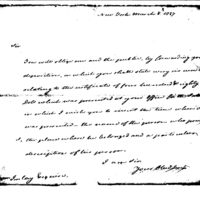 New York March 8 1827
Sir
You will oblige me and the public, by forwarding your
deposition, in which you shall state very
relating to the certificate of four hundred & eighty
Dolls which was presented at your Office
in which I wish you to insert the time when it
was presented. the name of the person who
it, the place where he belonged and a particular
description of his person.
I am Sir
Yours
Esquire.